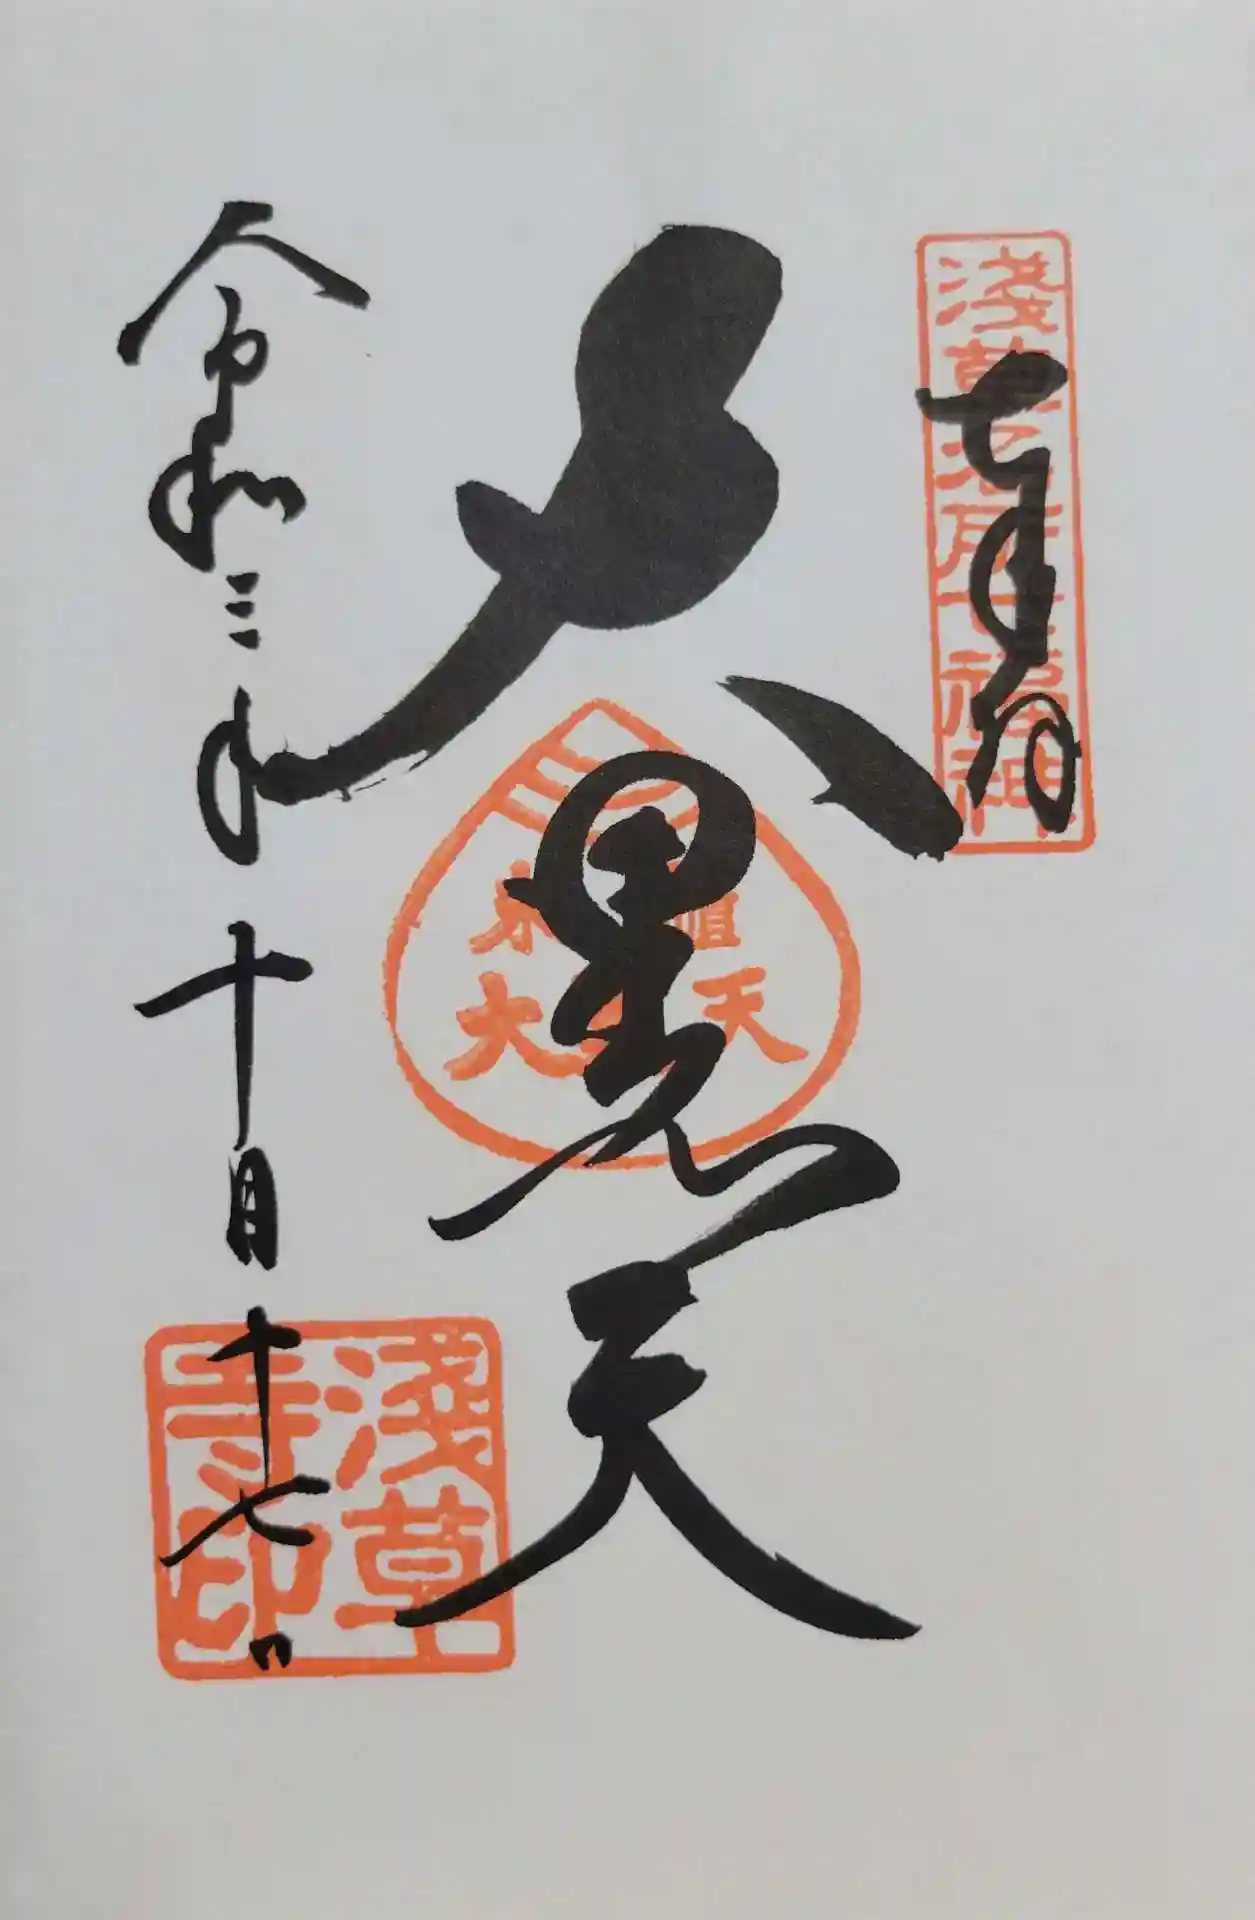 淺草名所七福神
奉拝
大黒天
米 
大 天
令和三年十月十七日
淺草
寺印